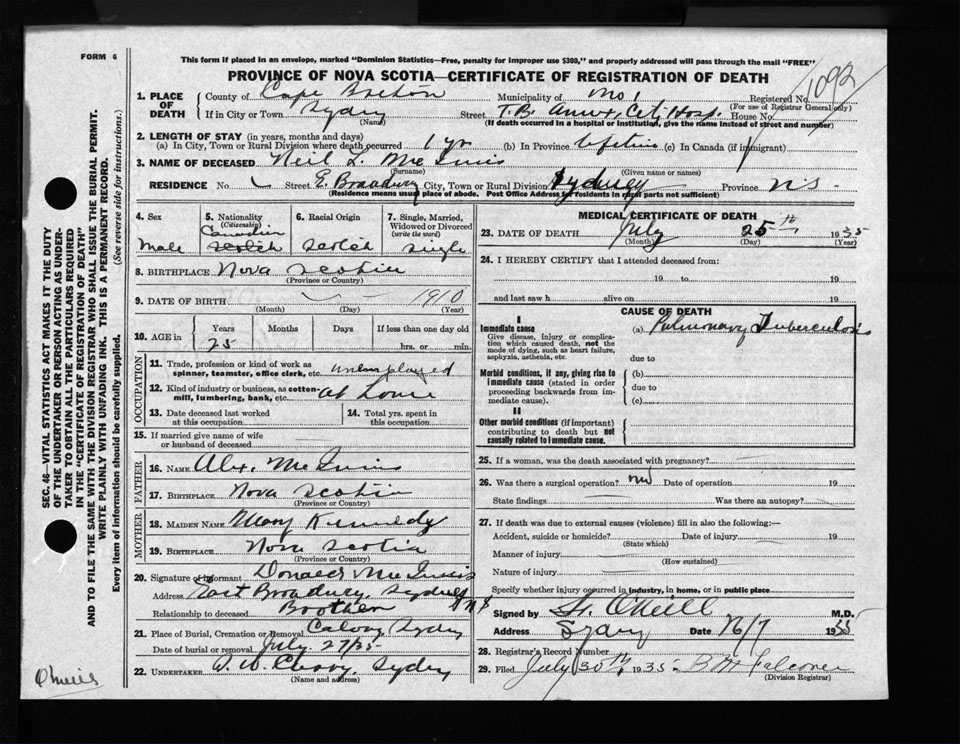 FORM 6
This form if placed in an envelope, marked "Dominion Statistics—Free, penalty for improper use $300," and properly addressed will pass through the mail "FREE"
PROVINCE OF NOVA SCOTIA—CERTIFICATE OF REGISTRATION OF DEATH
1092
1. PLACE OF DEATH
County of Cape Breton Municipality of Registered No.
(For use of Registrar General only)
If in City or Town Sydney Street T.B. Annex, City Hosp. House No.
(Name) (If death occurred in a hospital or institution, give the name instead of street and number)
2. LENGTH OF STAY (in years, months and days)
(a) In City, Town or Rural Division where death occurred 1 yr (b) In Province lifetime (c) In Canada (if immigrant)
3. NAME OF DECEASED Neil L. McInnis
(Surname) (Given name or names)
RESIDENCE No. Street E. Broadway City, Town or Rural Division Sydney Province N.S.
(Residence means usual place of abode. Post Office Address for residents in rural parts not sufficient)
4. Sex
Male
5. Nationality
(Citizenship)
Canadian
Scotch
6. Racial Origin
Scotch
7. Single, Married, Widowed or Divorced
(write the word)
Single
8. BIRTHPLACE Nova Scotia
(Province or Country)
9. DATE OF BIRTH 1910
(Month) (Day) (Year)
10. AGE in
Years Months Days If less than one day old
25 hrs. or min.
OCCUPATION
11. Trade, profession or kind of work as spinner, teamster, office clerk, etc. unemployed
12. Kind of industry or business, as cotton-mill, lumbering, bank, etc. at home
13. Date deceased last worked at this occupation
14. Total yrs. spent in this occupation
15. If married give name of wife or husband of deceased
FATHER
16. NAME Alex. McInnis
17. BIRTHPLACE Nova Scotia
(Province or Country)
MOTHER
18. MAIDEN NAME Mary Kennedy
19. BIRTHPLACE Nova Scotia
(Province or Country)
20. Signature of informant Donald McInnis
Address East Broadway, Sydney N.S
Relationship to deceased Brother
21. Place of Burial, Cremation or Removal Sydney
Date of burial or removal July 27/35
22. UNDERTAKER Sydney
(Name and address)
MEDICAL CERTIFICATE OF DEATH
23. DATE OF DEATH July 25th 1935
(Month) (Day) (Year)
24. I HEREBY CERTIFY that I attended deceased from:
19 to 19
and last saw h alive on 19
CAUSE OF DEATH
I
Immediate cause (a) Pulmonary Tuberculosis
Give disease, injury or complication which caused death, not the mode of dying, such as heart failure, asphyxia, asthenia, etc.
due to
Morbid conditions, if any, giving rise to immediate cause (stated in order proceeding backwards from immediate cause).
(b)
due to
(c)
II
Other morbid conditions (if important) contributing to death but not causally related to immediate cause.
25. If a woman, was the death associated with pregnancy?
26. Was there a surgical operation? no Date of operation 19
State findings Was there an autopsy?
27. If death was due to external causes (violence) fill in also the following:—
Accident, suicide or homicide? Date of injury 19
(State which)
Manner of injury
(How sustained)
Nature of injury
Specify whether injury occurred in industry, in home, or in public place
Signed by O'Neill M.D.
Address Sydney Date 26/7 1935
28. Registrar's Record Number
29. Filed July 30th 1935 Falconer
(Division Registrar)
SEC. 46—VITAL STATISTICS ACT MAKES IT THE DUTY OF THE UNDERTAKER OR PERSON ACTING AS UNDERTAKER TO OBTAIN ALL THE PARTICULARS REQUIRED IN THE "CERTIFICATE OF REGISTRATION OF DEATH"
AND TO FILE THE SAME WITH THE DIVISION REGISTRAR WHO SHALL ISSUE THE BURIAL PERMIT.
WRITE PLAINLY WITH UNFADING INK. THIS IS A PERMANENT RECORD.
Every item of information should be carefully supplied. (See reverse side for instructions.)